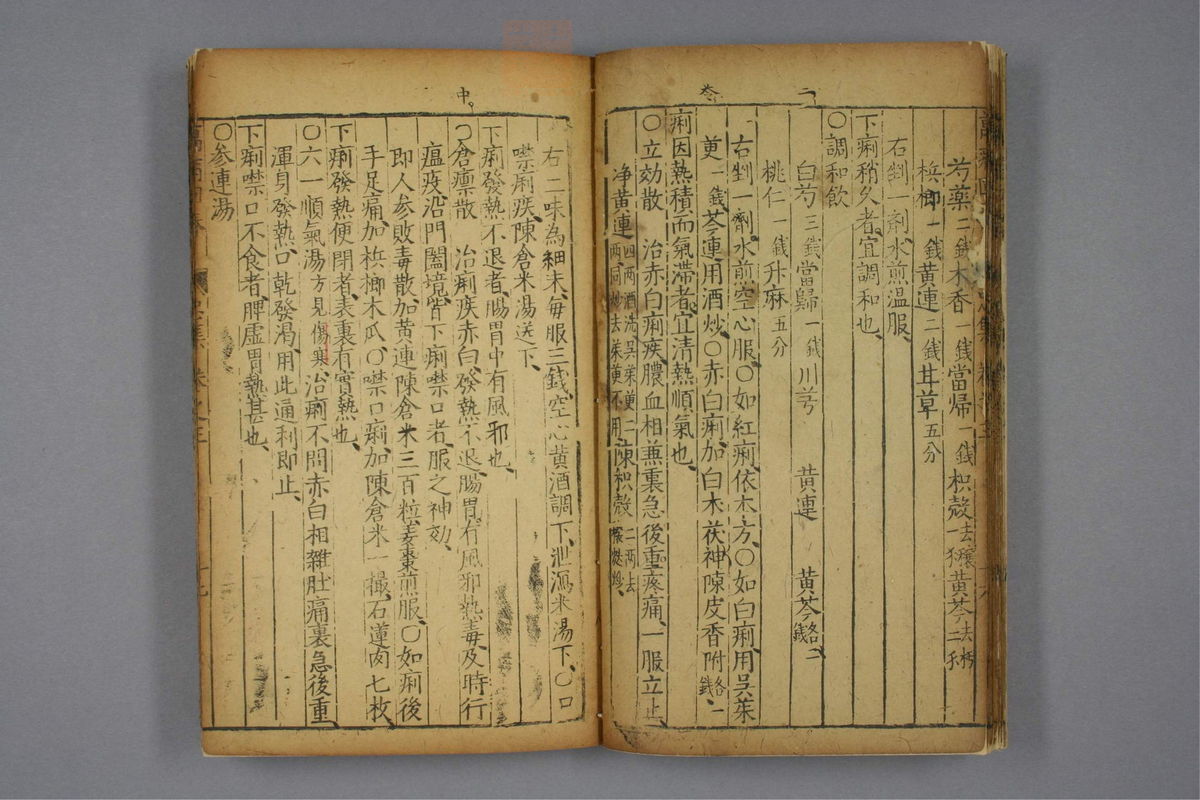 芍藥二錢木香一錢當帰一錢枳殼去穰一錢黃芩去朽二錢
梹榔一錢黃連二錢甘草五分
右剉一劑水煎温服
下痢稍久者宜調和也
○調和飲
白芍三錢當歸一錢川芎　黃連　黃芩各二錢
桃仁一錢升麻五分
右剉一劑水煎空心服○如紅痢依本方○如白痢用吳茱
萸一錢芩連用酒炒○赤白痢加白朮茯神陳皮香附各一錢
痢因熱積而氣滯者宜清熱順氣也
○立効散　治赤白痢疾膿血相兼裏急後重疼痛一服立止
净黃連四兩酒洗吳茱萸二兩同炒去茱萸不用陳枳殼二兩去穰麩炒
右二味為細末每服三錢空心黃酒調下泄瀉米湯下○口
噤痢疾陳倉米湯送下
下痢發熱不退者腸胃中有風邪也
○倉廪散　治痢疾赤白發熱不退腸胃有風邪熱毒及時行
瘟疫沿門闔境皆下痢噤口者服之神効
即人参敗毒散加黃連陳倉米三百粒姜棗煎服○如痢後
手足痛加梹榔木瓜○噤口痢加陳倉米一撮石蓮肉七枚
下痢發熱便閉者表裏有實熱也
○六一順氣湯方見傷寒治痢不問赤白相雜肚痛裏急後重
渾身發熱口乾發渴用此通利即止
下痢噤口不食者脾虛胃熱甚也
○参連湯